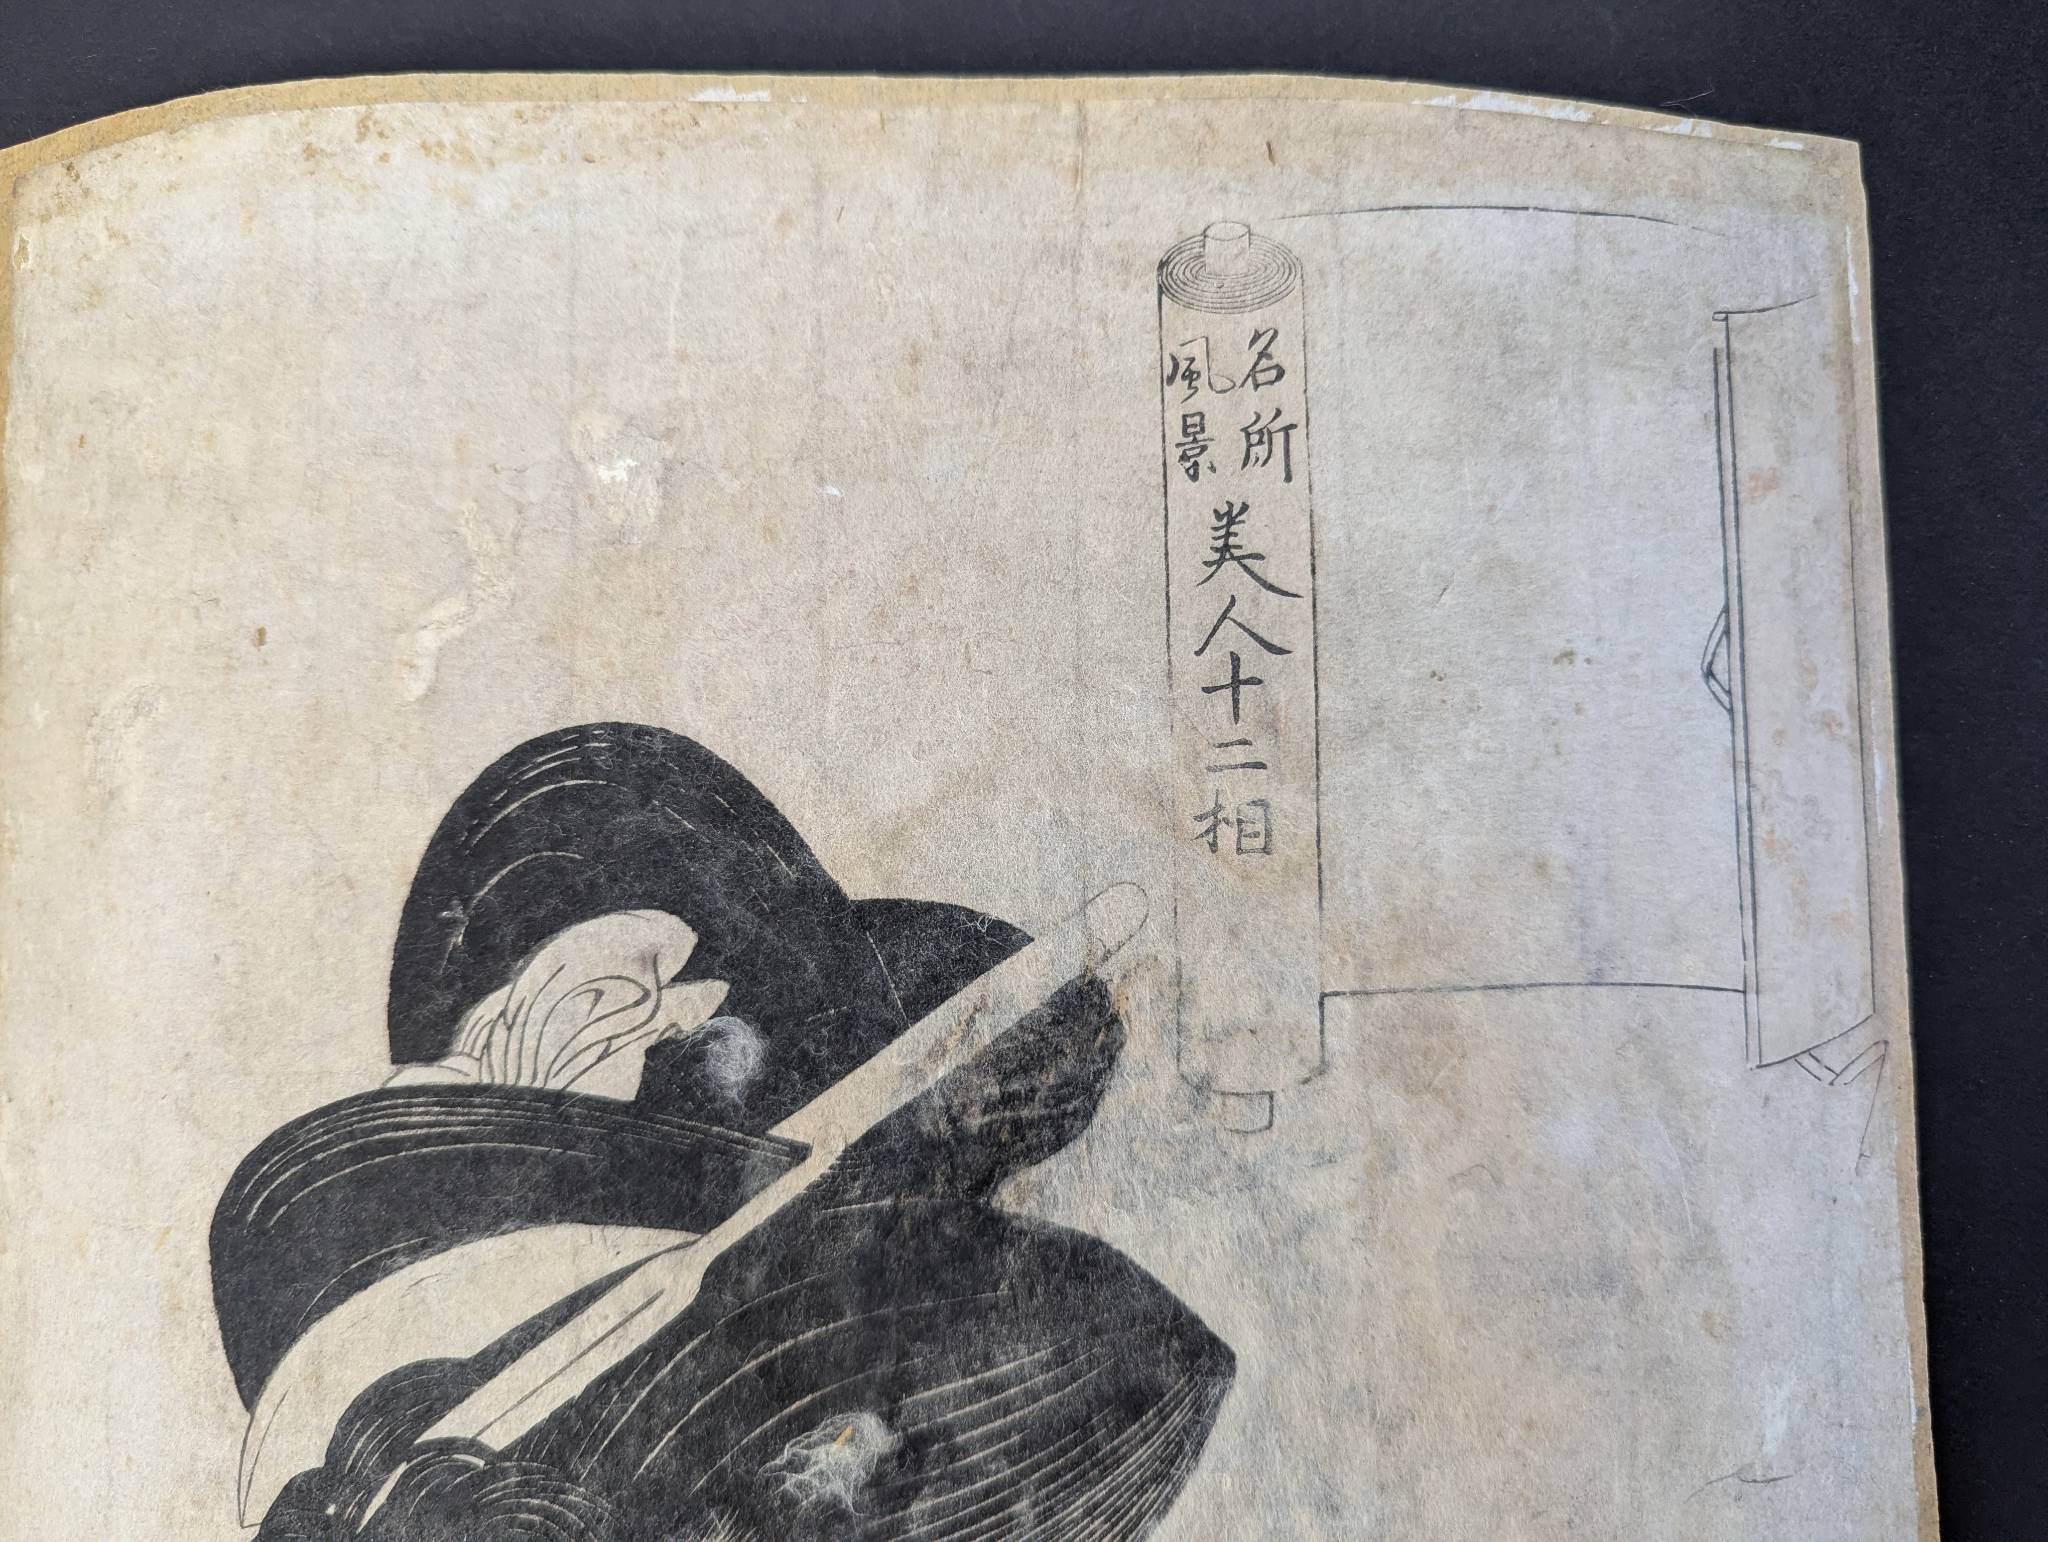 名所
風景
美人十二相